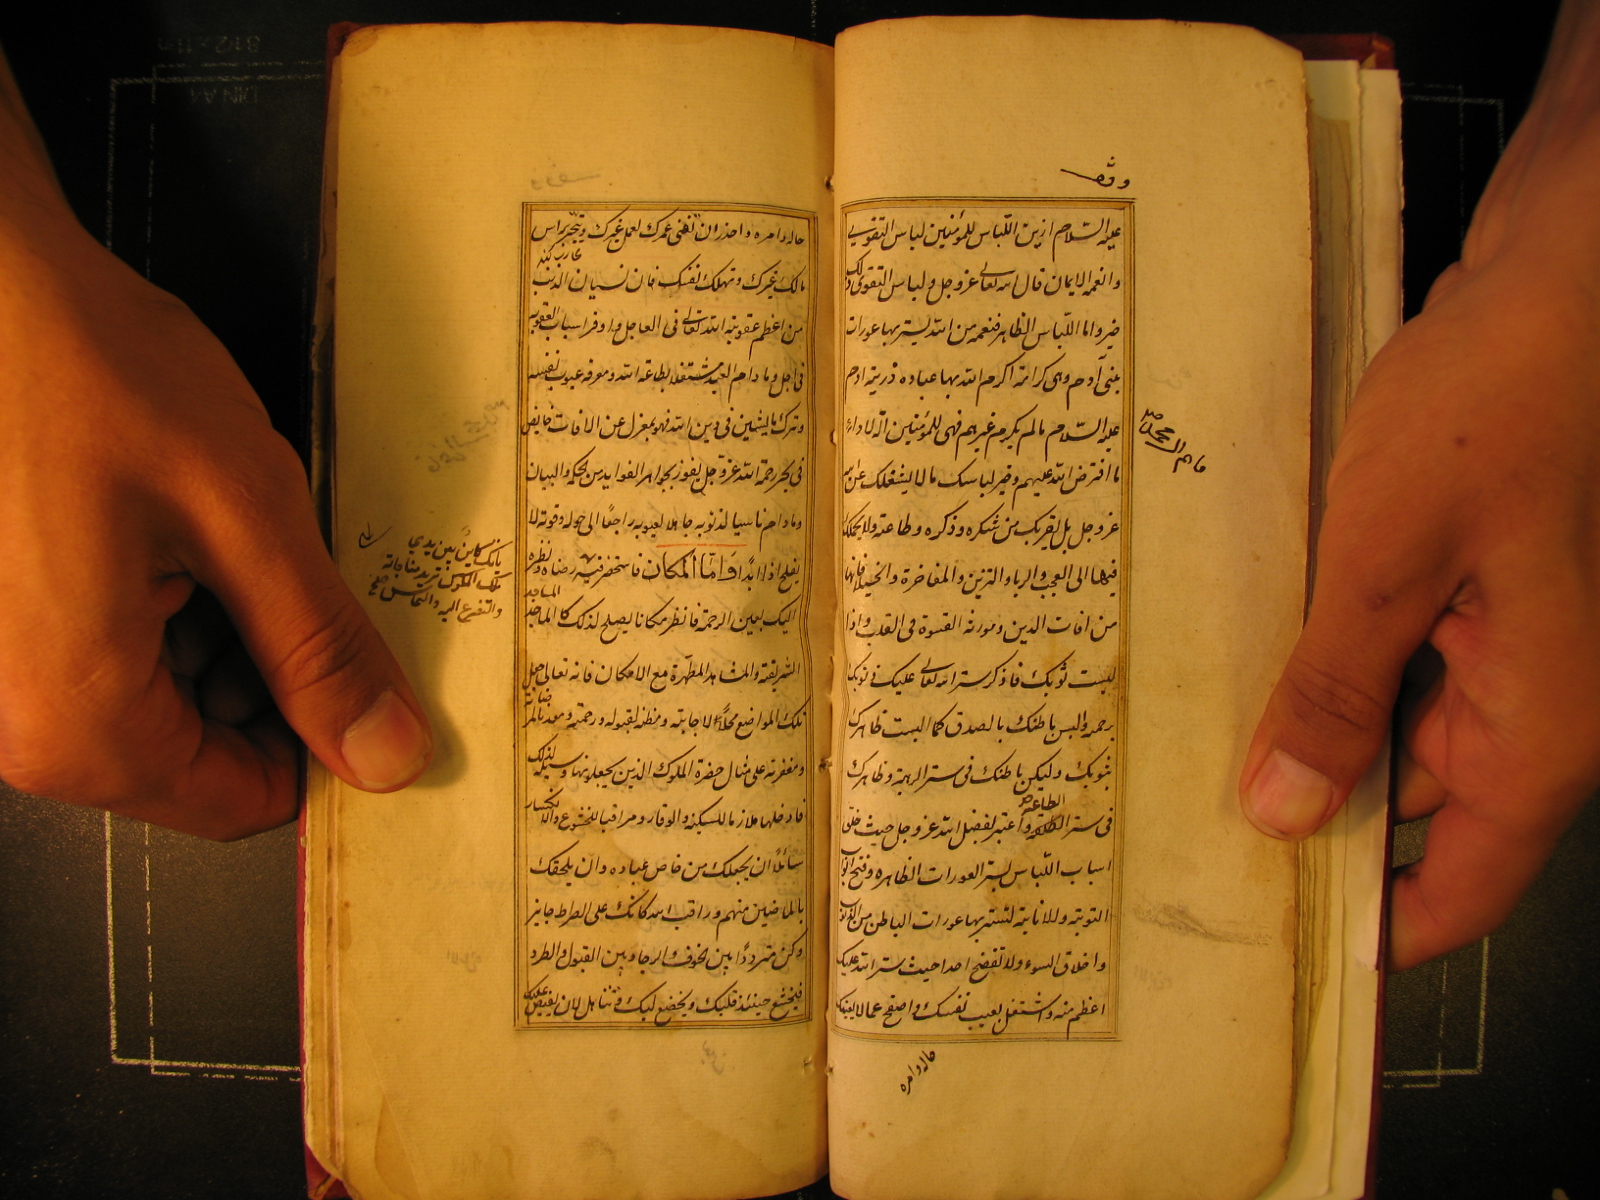 وقف
عليه السّلام ازين اللّباس للمؤمنين لباس التقوى
وانعمه الايمان قال الله تعالى عزوجل ولباس التقوى ذلك
خير واما اللّباس الظاهر فنعمه من الله يستر بها عورات
بنى آدم وهى كرامة اكرم الله بها عباده ذرية ادم
عليه السّلام مالم يكرم غيرهم فهى للمؤمنين آلة لاداء
ما افترض الله عليهم وخير لباسك مالا يشغلك عن الله
عزوجل بل يقربك من شكره وذكره وطاعته ولا يحملك
فيها الى العجب والريا والتزين والمفاخرة والخيلا فانها
من افات الدين ومورثة القسوة فى القلب واذا
لبست ثوبك فاذكر ستر الله تعالى عليك ذنوبك
برحمته والبس باطنك بالصدق كما البست ظاهرك
بثوبك وليكن باطنك فى ستر الرهبة وظاهرك
فى ستر الطاعة واعتبر بفضل الله عزوجل حيث خلق
الطاعة
اسباب اللّباس لستر العورات الظاهره وفتح ابواب
التوبة وللانابة لتستر بها عورات الباطن من الذنوب
واخلاق السوء ولا تفضح احدا حيث ستر الله عليك
اعظم منه واشتغل بعيب نفسك واصفح عمالا يعنيك
حاله وامره
حاله وامره واحذر ان تفنى عمرك لعمل غيرك ويتجر براس
مالك غيرك وتهلك نفسك فان نسيان الذنب
من اعظم عقوبة الله تعالى فى العاجل واوفر اسباب العقوبه
فى اجل وما دام العبد مشتغلا بطاعة الله ومعرفه عيوب نفسه
وترك ما يشين فى دين الله فهو بمعزل عن الافات خايض
فى بحر رحمة الله عزوجل يفوز بجواهر الفوايد من الحكمه والبيان
وما دام ناسيا لذنوبه جاهلا لعيوبه راجعًا الى حوله وقوته لا
يفلح اذا ابدًا وَامّا المكان فاستحضر فيه
اليك بعين الرحمة فانظر مكانا يصلح لذلك كالمساجد
المساجد
الشريفة والمشاهد المطهّرة مع الامكان فانه تعالى جعل
تلك المواضع محلًا لاجابته ومظنه لقبوله ورحمته ومعدنا لمرضاته
ومغفرته على مثال حضرة الملوك الذين يجعلونها وسيلة لذلك
فادخلها ملازما للسكينه والوقار ومراقبا للخشوع والانكسار
سائلًا ان يجعلك من خاص عباده وان يلحقك
بالماضين منهم وراقب الله كانك على الصراط جايز
وكن مترددًا بين الخوف والرجا وبين القبول والطرد
فيخشع حينئذ قلبك ويخضع لبك وتتاهل لان يفيض عليك
بانك كاين بين يدي
ملك الملوك تريد مناجاته
والتضرع اليه والتماس